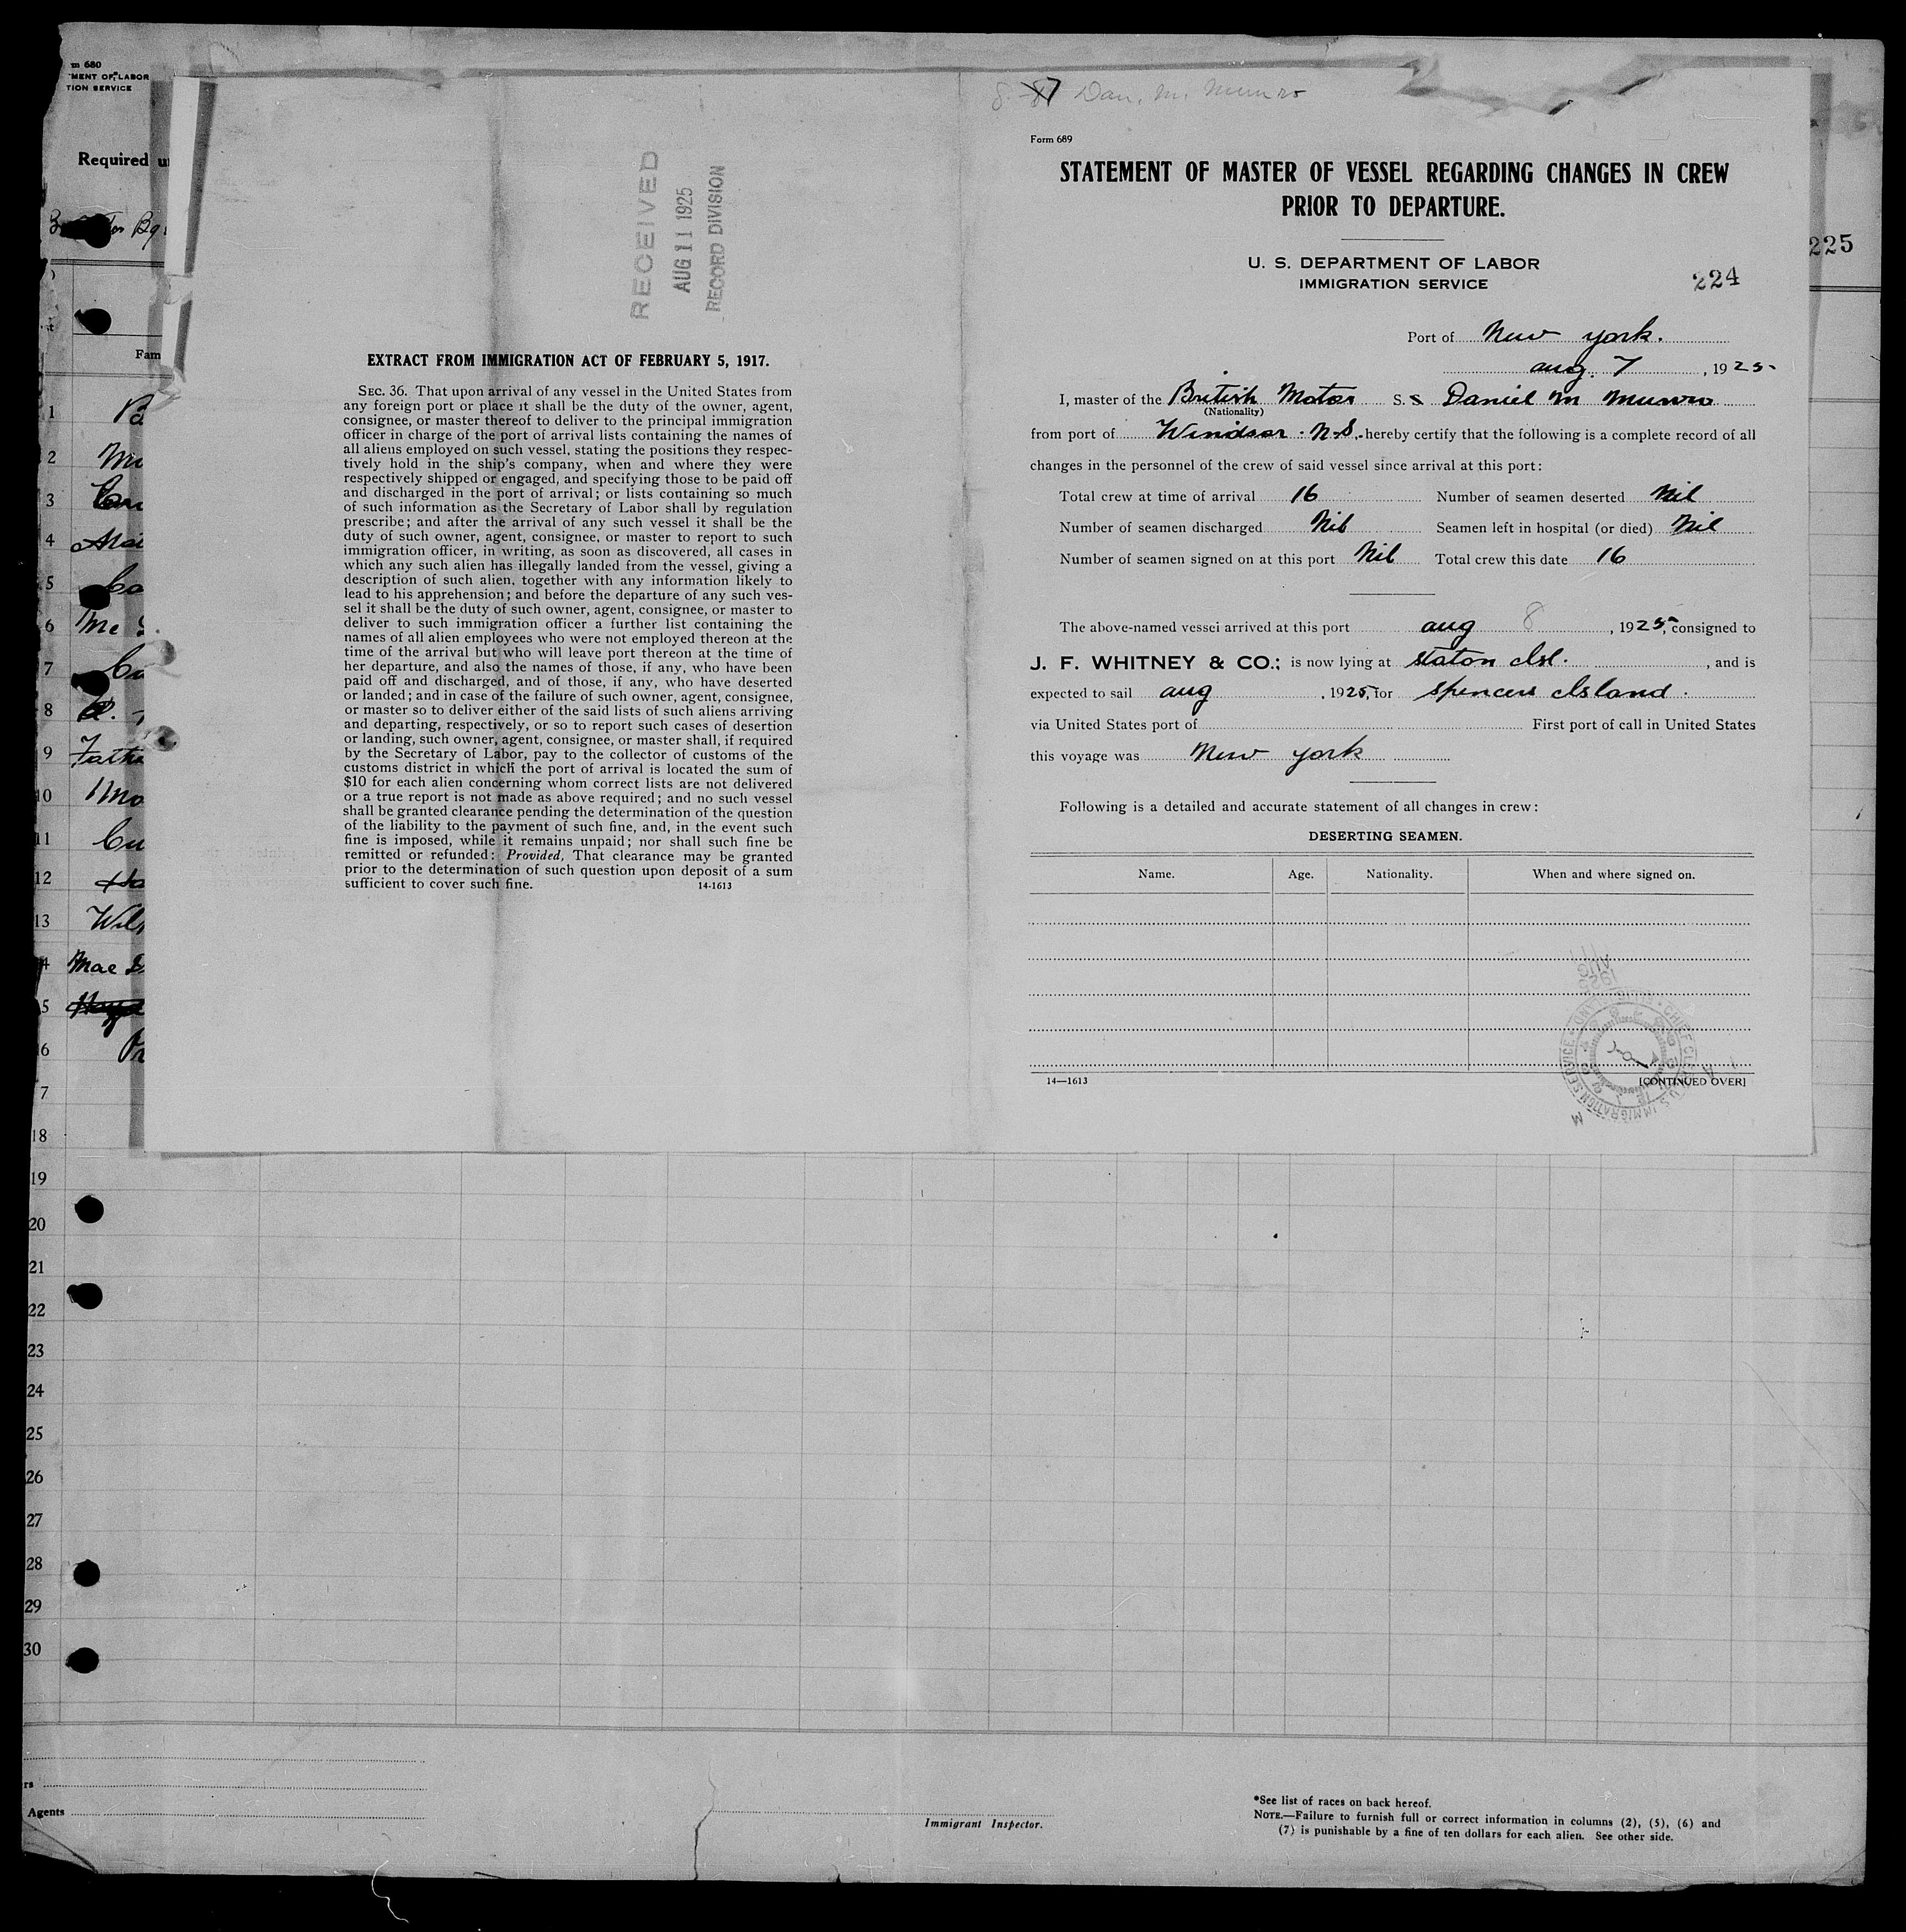 m 680
MENT OF LABOR
TION SERVICE
Required u
1
2
3
4
5
6
7
8
9
10
11
12
13
4
5
6
7
18
19
20
21
22
23
24
25
26
27
28
29
30
Fam
Wil
Mac
rs
Agents
RECEIVED
AUG 11 1925
RECORD DIVISION
EXTRACT FROM IMMIGRATION ACT OF FEBRUARY 5, 1917.
SEC. 36. That upon arrival of any vessel in the United States from
any foreign port or place it shall be the duty of the owner, agent,
consignee, or master thereof to deliver to the principal immigration
officer in charge of the port of arrival lists containing the names of
all aliens employed on such vessel, stating the positions they respec-
tively hold in the ship's company, when and where they were
respectively shipped or engaged, and specifying those to be paid off
and discharged in the port of arrival; or lists containing so much
of such information as the Secretary of Labor shall by regulation
prescribe; and after the arrival of any such vessel it shall be the
duty of such owner, agent, consignee, or master to report to such
immigration officer, in writing, as soon as discovered, all cases in
which any such alien has illegally landed from the vessel, giving a
description of such alien, together with any information likely to
lead to his apprehension; and before the departure of any such ves-
sel it shall be the duty of such owner, agent, consignee, or master to
deliver to such immigration officer a further list containing the
names of all alien employees who were not employed thereon at the
time of the arrival but who will leave port thereon at the time of
her departure, and also the names of those, if any, who have been
paid off and discharged, and of those, if any, who have deserted
or landed; and in case of the failure of such owner, agent, consignee,
or master so to deliver either of the said lists of such aliens arriving
and departing, respectively, or so to report such cases of desertion
or landing, such owner, agent, consignee, or master shall, if required
by the Secretary of Labor, pay to the collector of customs of the
customs district in which the port of arrival is located the sum of
$10 for each alien concerning whom correct lists are not delivered
or a true report is not made as above required; and no such vessel
shall be granted clearance pending the determination of the question
of the liability to the payment of such fine, and, in the event such
fine is imposed, while it remains unpaid; nor shall such fine be
remitted or refunded: Provided, That clearance may be granted
prior to the determination of such question upon deposit of a sum
sufficient to cover such fine. 14-1613
Dan. M. Munro
Form 689
STATEMENT OF MASTER OF VESSEL REGARDING CHANGES IN CREW
PRIOR TO DEPARTURE.
U. S. DEPARTMENT OF LABOR
IMMIGRATION SERVICE
224
225
Port of New York.
Aug. 7, 1925
I, master of the British Motor S. S Daniel M Munro
(Nationality)
from port of Windsor N.S. hereby certify that the following is a complete record of all
changes in the personnel of the crew of said vessel since arrival at this port:
Total crew at time of arrival 16 Number of seamen deserted Nil
Number of seamen discharged Nil Seamen left in hospital (or died) Nil
Number of seamen signed on at this port Nil Total crew this date 16
The above-named vessel arrived at this port Aug 8, 1925, consigned to
J. F. WHITNEY & CO.; is now lying at Staton Isl., and is
expected to sail Aug, 1925, for Spencers Island.
via United States port of First port of call in United States
this voyage was New York
Following is a detailed and accurate statement of all changes in crew:
DESERTING SEAMEN.
Name. Age. Nationality. When and where signed on.
14—1613 [CONTINUED OVER]
Immigrant Inspector.
*See list of races on back hereof.
NOTE.—Failure to furnish full or correct information in columns (2), (5), (6) and
(7) is punishable by a fine of ten dollars for each alien. See other side.